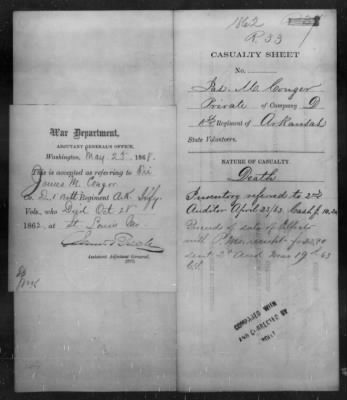 War Department,
ADJUTANT GENERAL'S OFFICE,
Washington, May 25, 1868.
This is accepted as referring to Pri
James M.
Co. D, 1 Batt Regiment Ark. Infy.
Vols., who Died Oct 25
1862, at St. Louis Mo.
Assistant Adjutant General.
1862
R. 33
CASUALTY SHEET
No.
Jas. M. Conger
Private of Company D
Regiment of Arkansas
State Volunteers.
NATURE OF CASUALTY.
Death
Inventory referred to 2nd
Auditor April 23/63. Cash
Proceeds of sale of Effects
with
sent 2d Aud Mar 19th 63
COMPARED WITH
AND CORRECTED BY